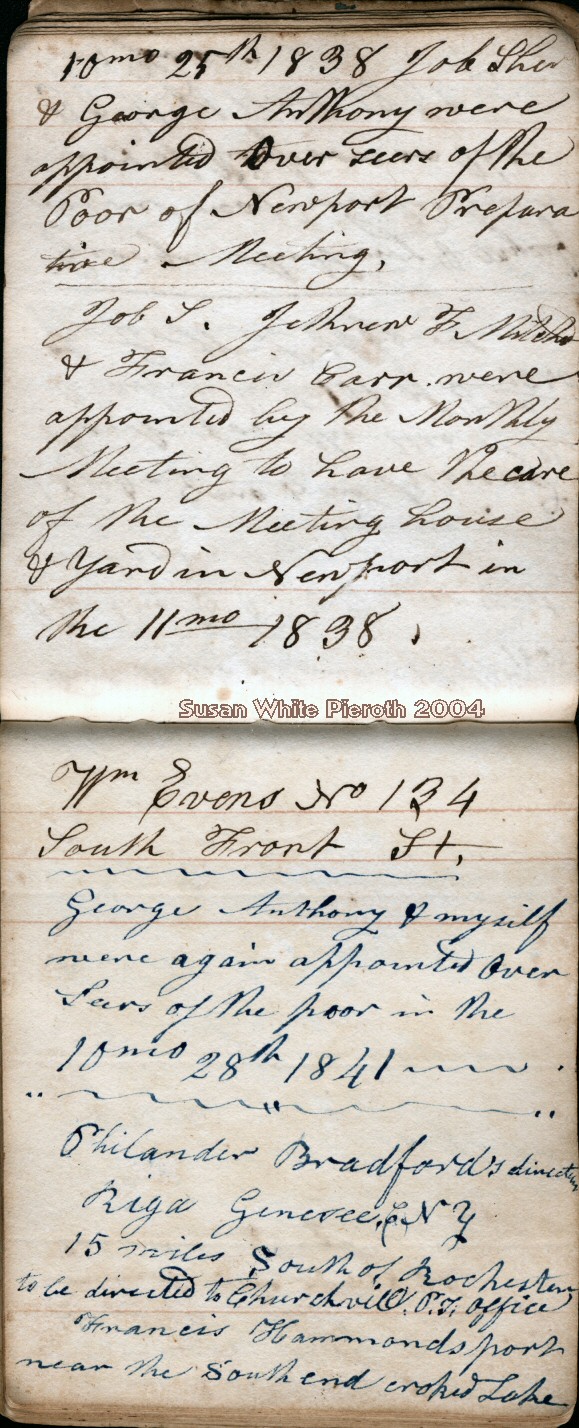 10mo 25th 1838 Job Sher
& George Anthony were
appointed Over seers of the
Poor of Newport Prepara
tive Meeting,
Job S. Jethrew F. Mitchel
& Francis Carr were
appointed by the Monthly
Meeting to have the care
of the Meeting house
& Yard in Newport in
the 11mo 1838,
Susan White Pieroth 2004
Wm Evens No 134
South Front St,
George Anthony & myself
were again appointed Over
Seers of the poor in the
10mo 28th 1841
Philander Bradford's direction
Riga Genesee NY
15 miles South of Rochester
to be directed to Churchvill P.T. office
Francis Hammondsport
near the South end croked Lake